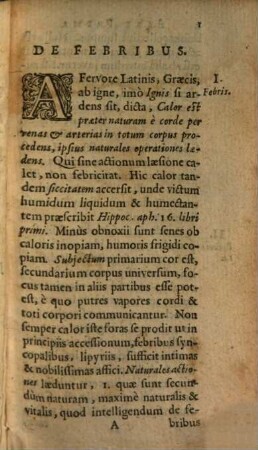 1
DE FEBRIBUS.
A Fervore Latinis, Græcis, I.
ab igne, imò Ignis si ar- Febris.
dens sit, dicta, Calor est
præter naturam è corde per
venas & arterias in totum corpus pro-
cedens, ipsius naturales operationes læ-
dens. Qui sine actionum læsione ca-
let, non febricitat. Hic calor tan-
dem siccitatem accersit, unde victum
humidum liquidum & humectan-
tem præscribit Hippoc. aph. 16. libri
primi. Minùs obnoxii sunt senes ob
caloris inopiam, humoris frigidi co-
piam. Subjectum primarium cor est,
secundarium corpus universum, fo-
cus tamen in aliis partibus esse pot-
est, è quo putres vapores cordi &
toti corpori communicantur. Non
semper calor iste foras se prodit ut in
principiis accessionum, febribus syn-
copalibus, lipyriis, sufficit intimas
& nobilissimas affici. Naturales actio-
nes læduntur, 1. quæ sunt secun-
dùm naturam, maximè naturalis &
vitalis, quod intelligendum de fe-
A bribus